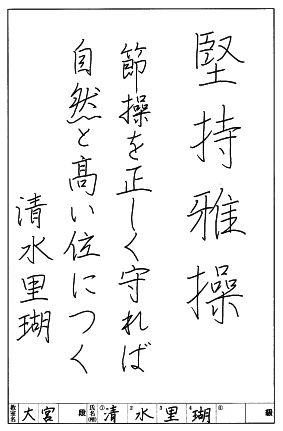 堅持雅操
節操を正しく守れば
自然と高い位につく
清水里瑚
教室名 大宮 段 氏名(号) ① 清 2 水 3 里 4 瑚 ⑥ 級